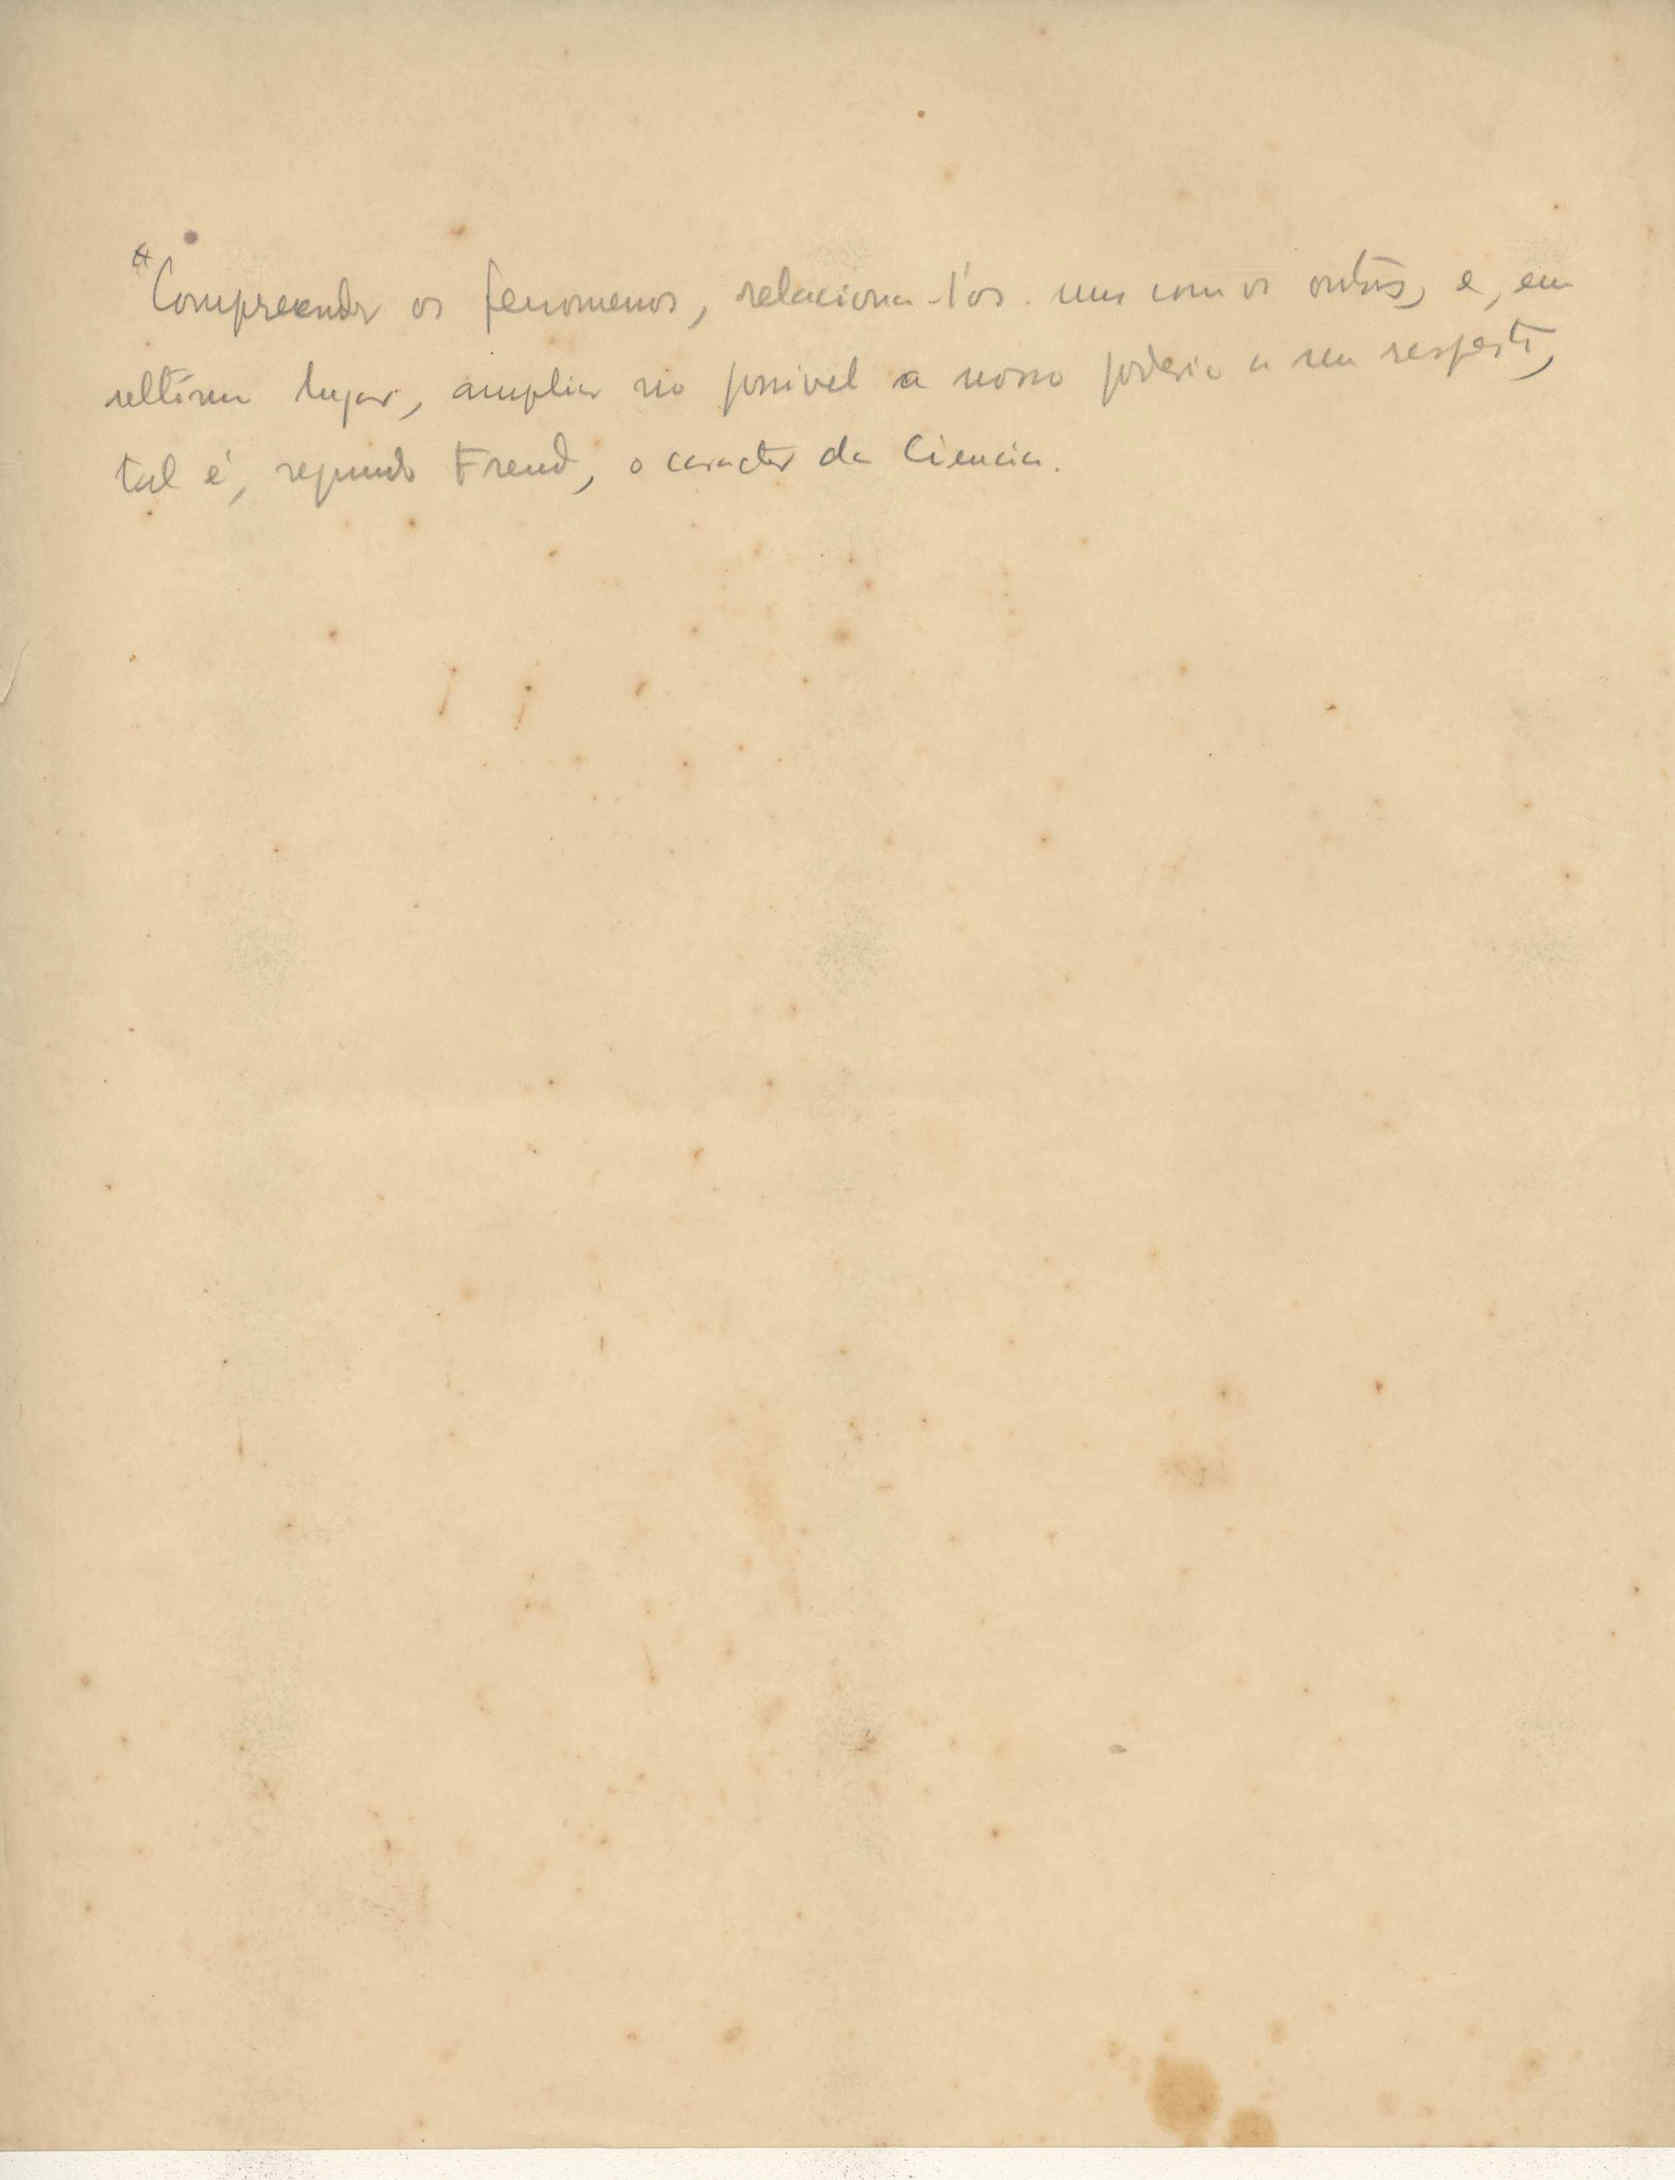 *Compreender os fenomenos, relaciona-l'os uns com os outros, e, em
ultimo lugar, ampliar no possivel o nosso poderio a seu respeito,
tal é, segundo Freud, o caracter da Ciencia.